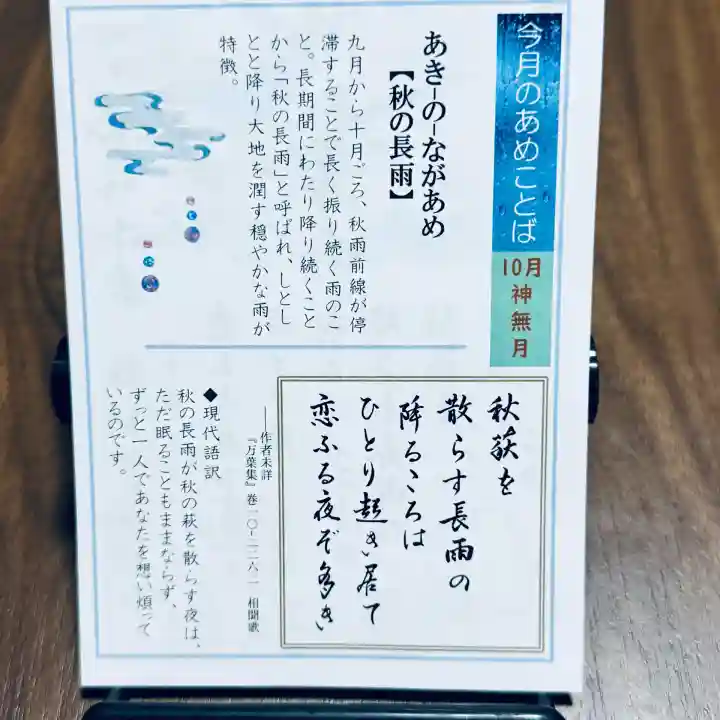 今月のあめことば
10月
神無月
あき-の-ながあめ
【秋の長雨】
九月から十月ごろ、秋雨前線が停
滞することで長く振り続く雨のこ
と。長期間にわたり降り続くこと
から「秋の長雨」と呼ばれ、しとし
とと降り大地を潤す穏やかな雨が
特徴。
秋萩を
散らす長雨の
降るころは
ひとり起き居て
恋ふる夜ぞ多き
──作者未詳
『万葉集』巻一〇-二二六二 相聞歌
◆現代語訳
秋の長雨が秋の萩を散らす夜は、
ただ眠ることもままならず、
ずっと一人であなたを想い煩って
いるのです。